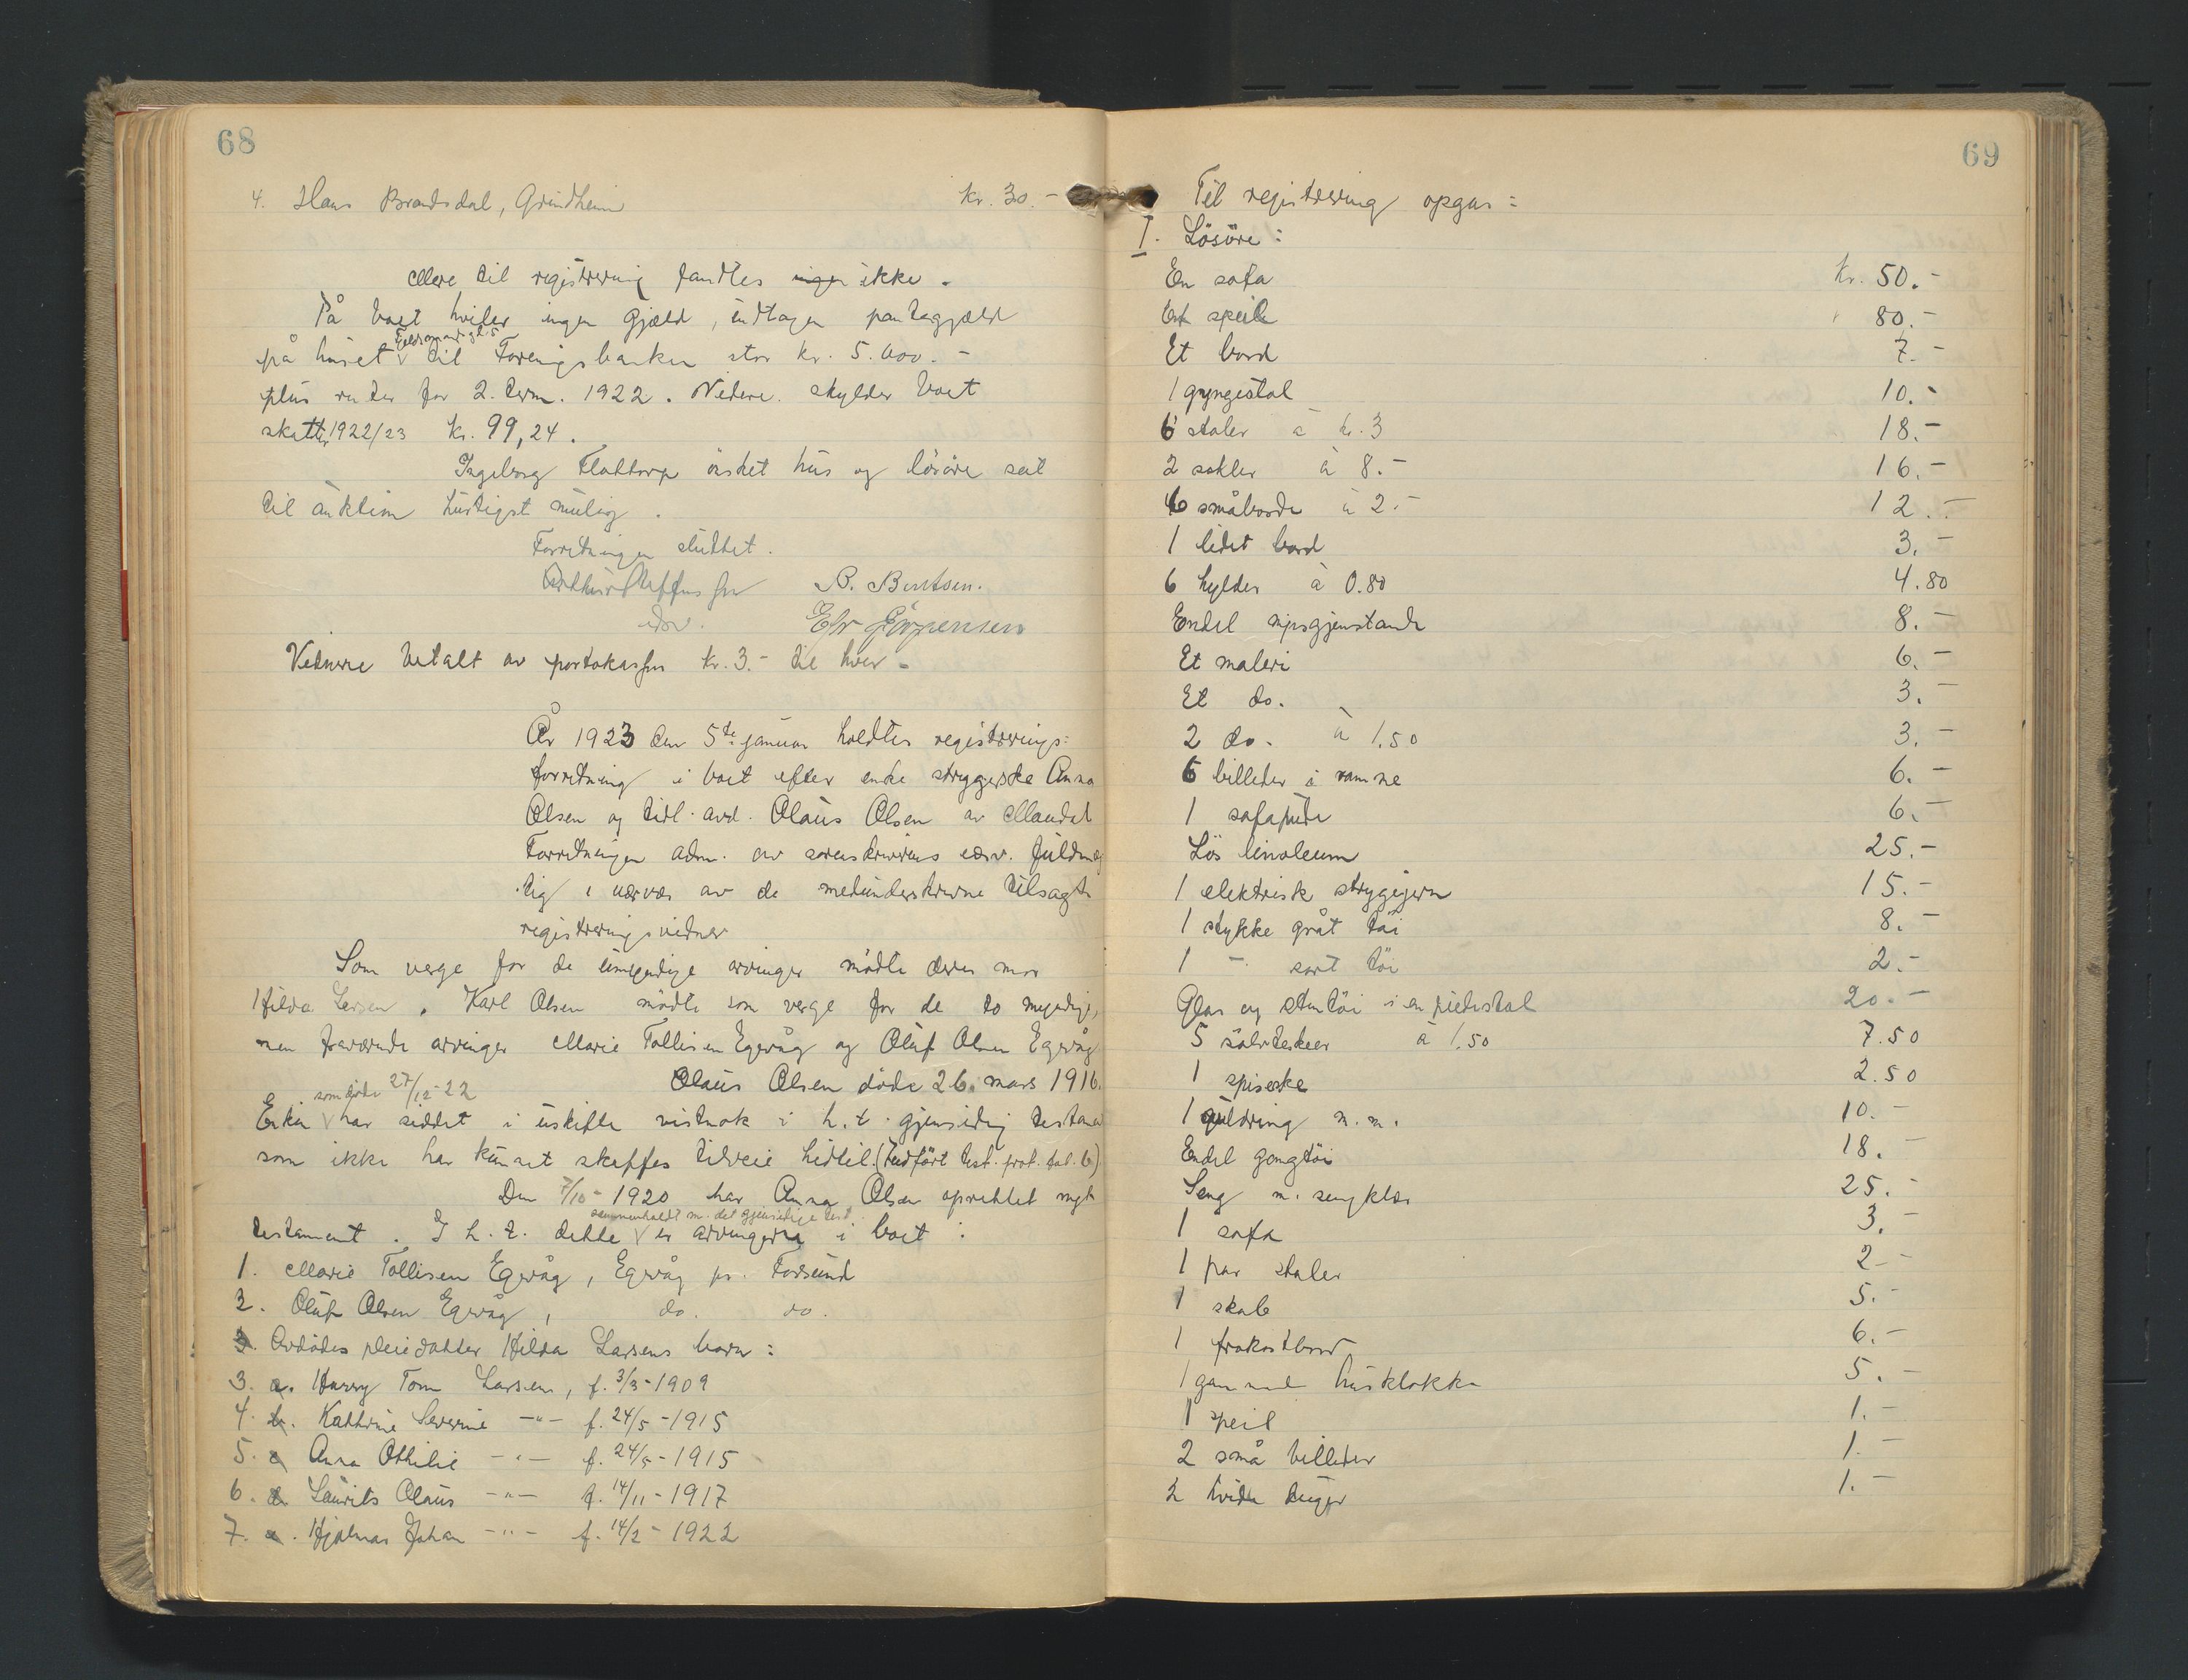 68
4. Hans Brandsdal, Grindheim kr. 30.-
Mere til registrering fandtes ikke.
På boet hviler ingen gjæld, undtagen pantegjæld
på huset til Foreningsbanken stor kr. 5.000.-
plus renter for 2. term. 1922. Videre skylder boet
skatter 1922/23 kr. 99,24.
Ingeborg Flottorp ønsket hus og løsøre sat
til auktion hurtigst mulig.
Forretningen sluttet.
B. Bentsen.
edsv. Jörgensen
Vidnene betalt av portokassen kr. 3.- til hver.
År 1923 den 5te januar holdtes registrerings-
forretning i boet efter enke strygerske Anna
Olsen og tidl. avd. Olaus Olsen av Mandal
Forretningen adm. av sorenskriverens edsv. fuldmæg
tig i nærvær av de medunderskrevne tilsagte
registreringsvidner
Som verge for de umyndige arvinger mødte deres mor
Hilda Larsen. Karl Olsen mødte som verge for de to myndige,
men fraværende arvinger Marie Tollisen Egvåg og Oluf Olsen Egvåg
Olaus Olsen døde 26. mars 1916.
som døde 27/12-22
Enken har siddet i uskifte vistnok i h. t. gjensidig testament
som ikke har kunnet skaffes tilveie hidtil. (Indført test. prot. fol. 6)
Den 7/10-1920 har Anna Olsen oprettet nyt
sammenholdt m. det gjensidige test.
testament. I h. t. dette er arvingerne i boet:
1. Marie Tollisen Egvåg, Egvåg pr. Farsund
2. Oluf Olsen Egvåg, do. do.
3. Avdødes pleiedatter Hilda Larsens barn:
3. a. Harry Tom Larsen, f. 3/3-1909
4. b. Kathrine Severine -"- f. 24/5-1915
5. c. Anna Othilie -"- f. 24/5-1915
6. d. Laurits Olaus -"- f. 14/11-1917
7. e. Hjalmar Johan -"- f. 14/2-1922
69
Til registrering opgas:
I. Løsøre:
En sofa kr. 50.-
Et speil " 80.-
Et bord 7.-
1 gyngestol 10.-
6 stoler à kr. 3 18.-
2 sokler à 8.- 16.-
6 småborde à 2.- 12.-
1 lidet bord 3.-
6 hylder à 0.80 4.80
Endel nipsgjenstande 8.-
Et maleri 6.-
Et do. 3.-
2 do. à 1.50 3.-
6 billeder i ramme 6.-
1 sofapute 6.-
Løs linoleum 25.-
1 elektrisk strygejern 15.-
1 stykke gråt tøi 8.-
1 - sort tøi 2.-
Glas og stentøi i en piedestal 20.-
5 sølvteskeer à 1.50 7.50
1 spiseske 2.50
1 guldring m. m. 10.-
Endel gangtøi 18.-
Seng m. sengklær 25.-
1 sofa 3.-
1 par stoler 2-
1 skab 5.-
1 frokostbord 6.-
1 gammel husklokke 5.-
1 speil 1.-
2 små billeder 1.-
2 hvide duger 1.-